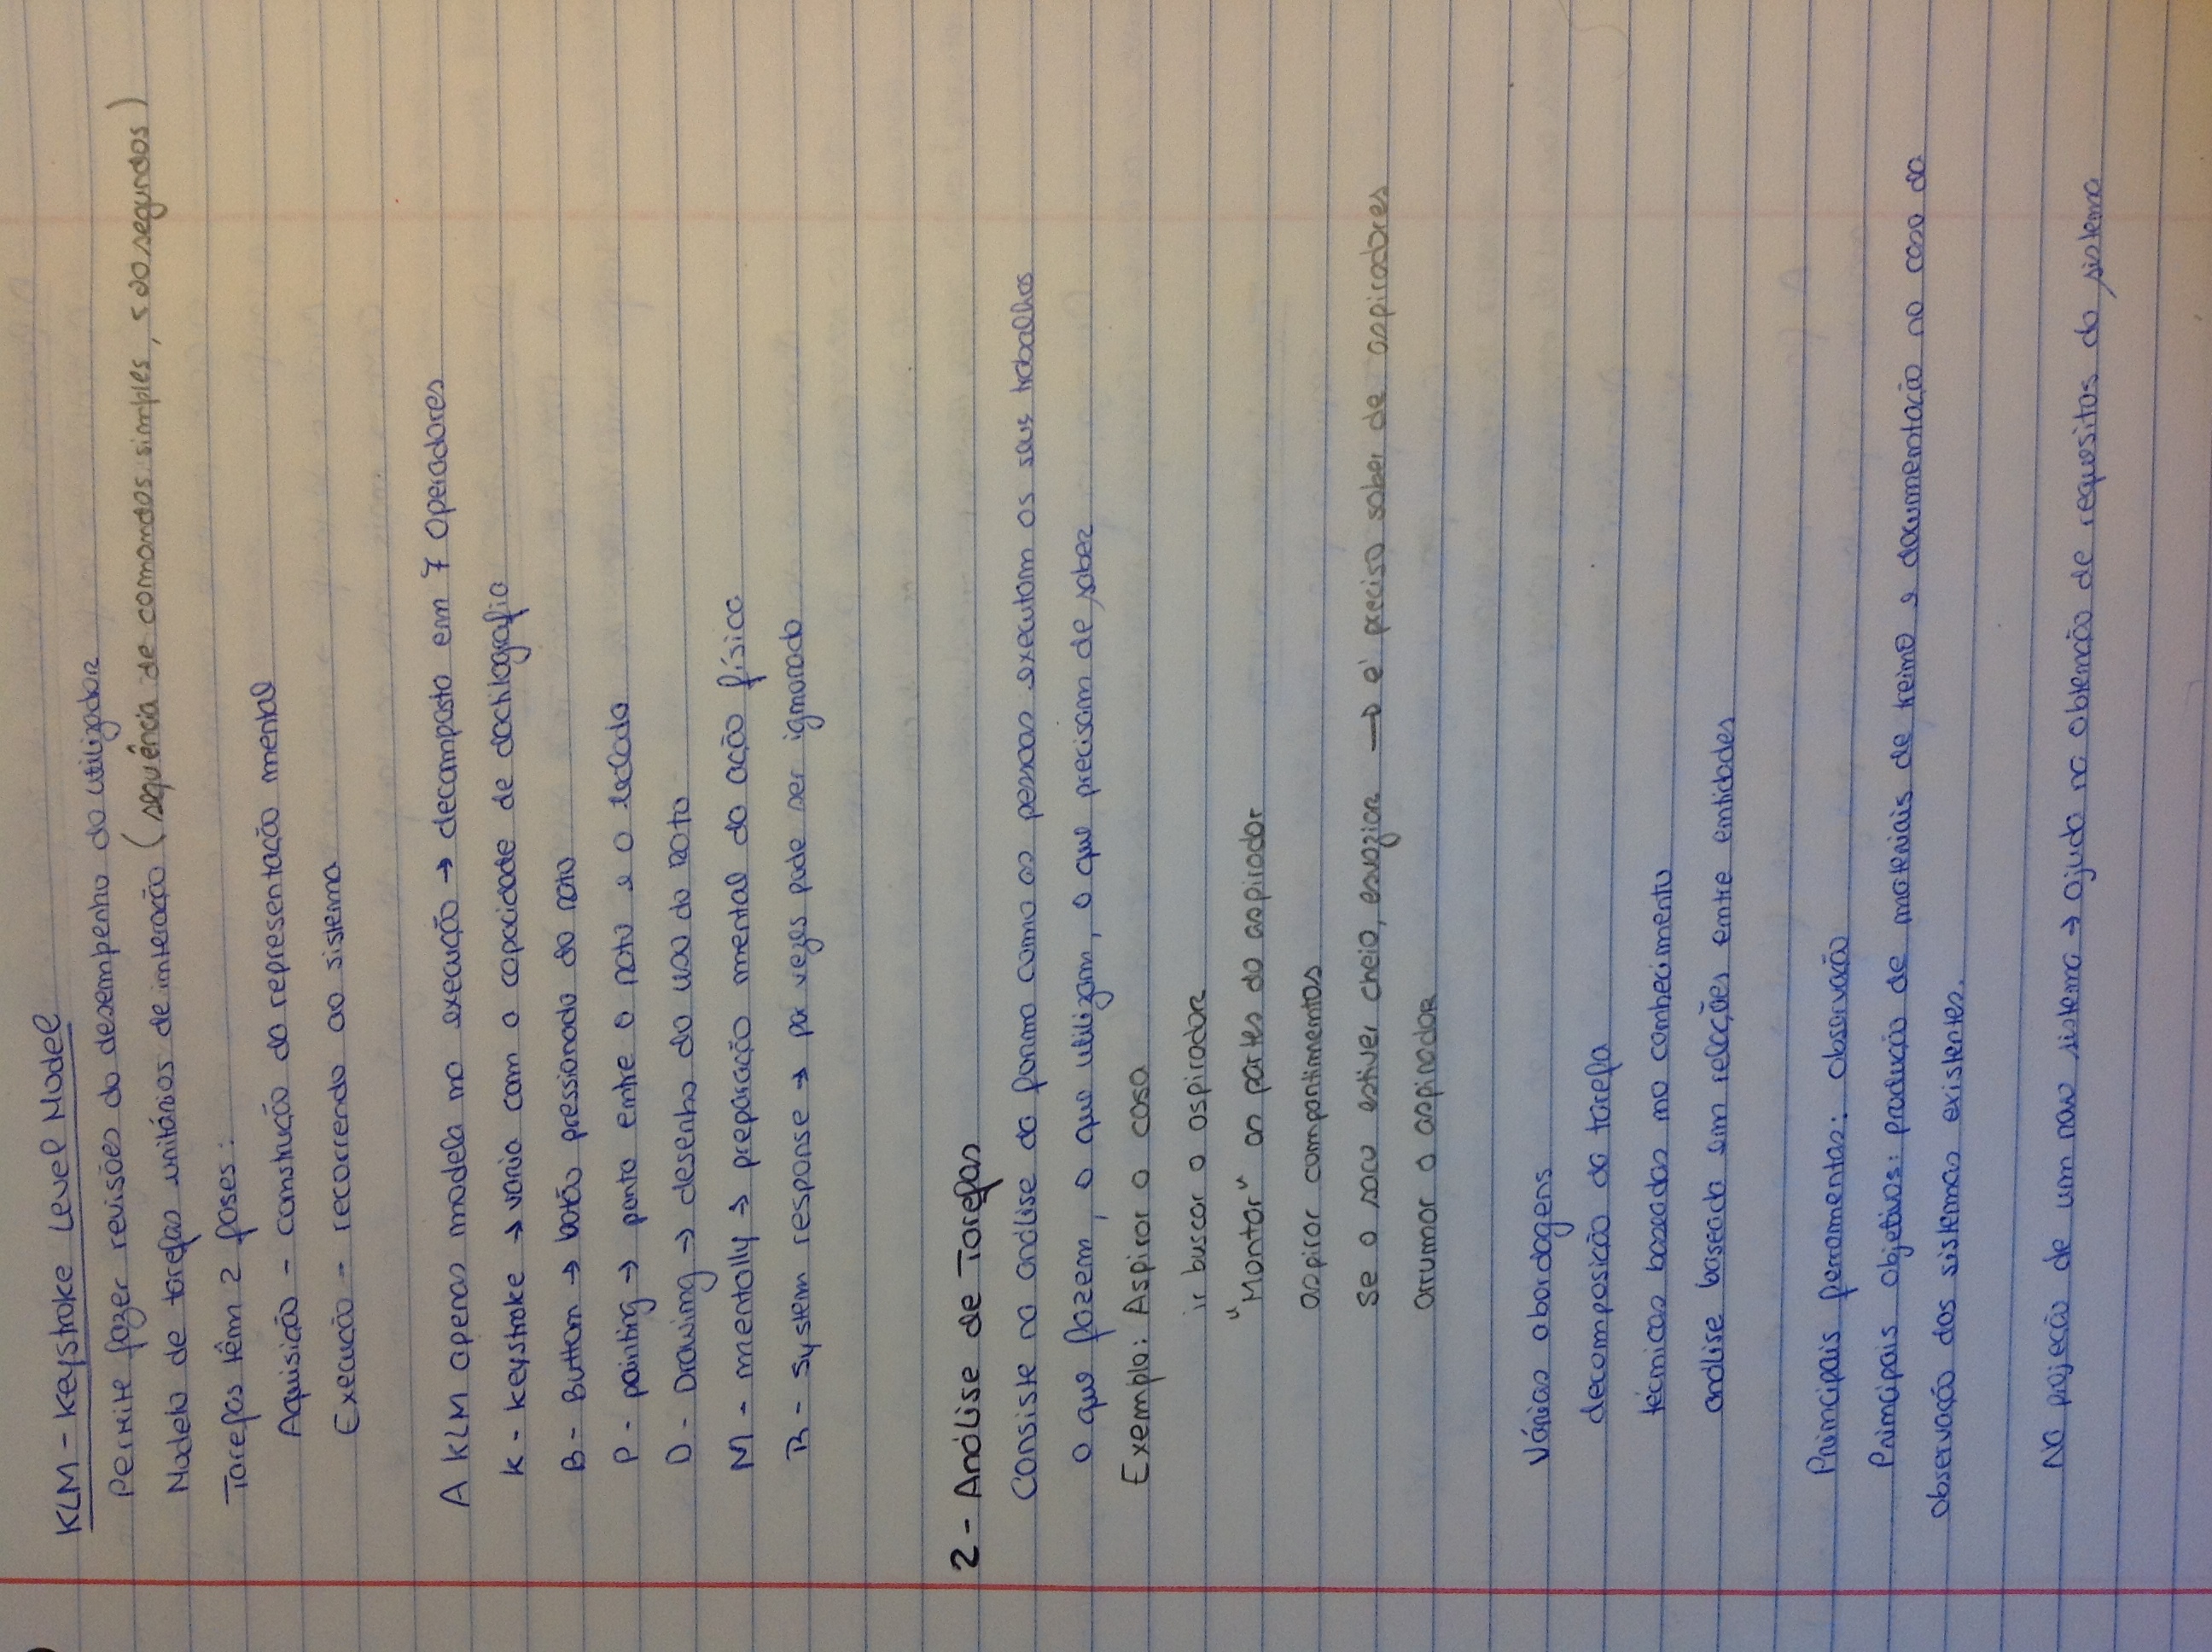 KLM - Keystroke Level Model
Permite fazer revisões do desempenho do utilizador
Modelo de tarefas unitários de interação (sequência de comandos simples, < 20 segundos)
Tarefas têm 2 fases:
Aquisição - construção da representação mental
Execução - recorrendo ao sistema
A KLM apenas modela na execução → decomposta em 7 Operadores
K - keystroke → varia com a capacidade de dactilografia
B - Button → botão pressionado do rato
P - pointing → ponto entre o rato e o teclado
D - Drawing → desenho do uso do rato
M - mentally → preparação mental da ação física
R - System response → por vezes pode ser ignorado
2 - Análise de Tarefas
Consiste na análise da forma como as pessoas executam os seus trabalhos
o que fazem, o que utilizam, o que precisam de saber
Exemplo: Aspirar a casa
ir buscar o aspirador
"Montar" as partes do aspirador
aspirar compartimentos
se o saco estiver cheio, esvaziar → é preciso saber de aspiradores
arrumar o aspirador
Várias abordagens
decomposição da tarefa
técnicas baseadas no conhecimento
análise baseada em relações entre entidades
Principais ferramentas: observação
Principais objetivos: produção de materiais de treino e documentação no caso da
observação dos sistemas existentes.
Na projeção de um novo sistema → ajuda na obtenção de requesitos do sistema